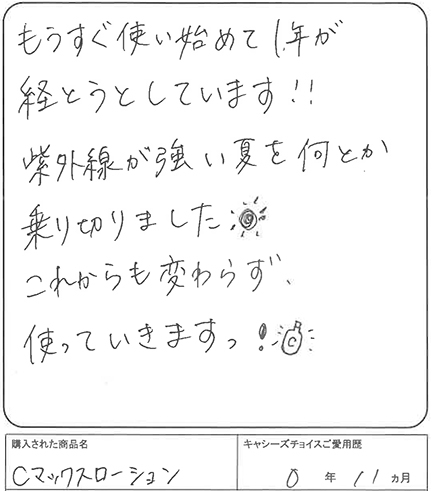 もうすぐ使い始めて1年が
経とうとしています!!
紫外線が強い夏を何とか
乗り切りました
これからも変わらず、
使っていきますっ!
C
購入された商品名
キャシーズチョイスご愛用歴
Cマックスローション
0年11ヵ月